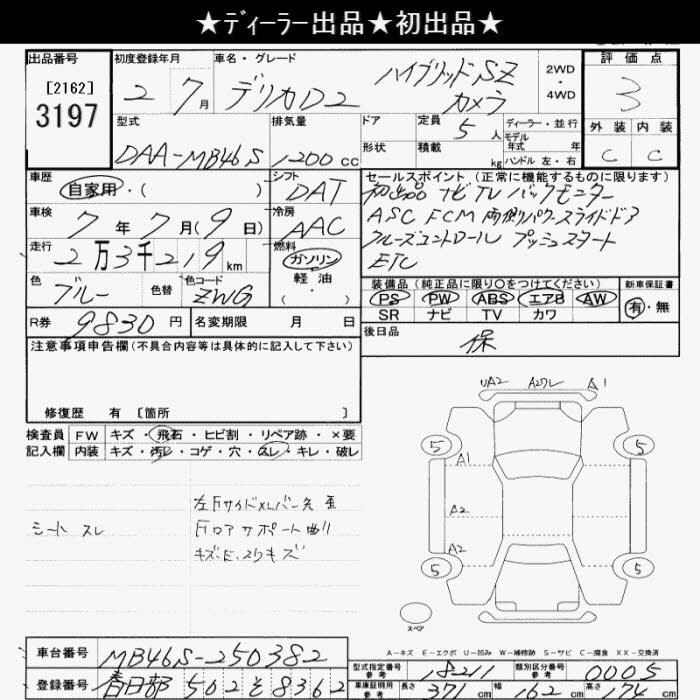 ★ディーラー出品★初出品★
出品番号 初度登録年月 車名・グレード 評価点
[2162]
3197
2 7月 デリカD2 ハイブリッドSZ カメラ 2WD・4WD 3
型式 排気量 ドア 定員 5人 ディーラー・並行 外装 内装
モデル年式 年
DAA-MB46S 1200cc 形状 積載 kg ハンドル 左・右 C C
車歴 シフト セールスポイント (正常に機能するものに限ります)
自家用・( ) DAT 初出品 ナビ TV バックモニター
車検 冷房 ASC FCM 両側パワースライドドア
7年7月(9日) AAC クルーズコントロール プッシュスタート
走行 燃料 ETC
2万3千219km ガソリン
軽油
・( )
色 色替 色コード 装備品 (純正品に限り○をつけてください) 新車保証書
ブルー ZWG PS PW ABS エアB AW 有・無
SR ナビ TV カワ
R券 9830円 名変期限 月 日 後日品
保
注意事項申告欄(不具合内容等は具体的に記入して下さい)
修復歴 有 [箇所 ]
検査員 FW キズ・飛石・ヒビ割・リペア跡・×要
記入欄 内装 キズ・汚レ・コゲ・穴・スレ・キレ・破レ
シート スレ
左Fサイドメンバー先 歪
Fロアサポート曲り
キズ、E、スリキズ
UA2 A2ワレ A1
5 5
A1
A2
A2
5 5
スペア
A-キズ E-エクボ U-凹み W-補修跡 S-サビ C-腐食 XX-交換済
車台番号 MB46S-250382 型式指定番号 参考 18211 類別区分番号 参考 0005
登録番号 春日部 502 そ 8362 車庫証明用 参考 長さ 371cm 幅 162cm 高さ 174cm